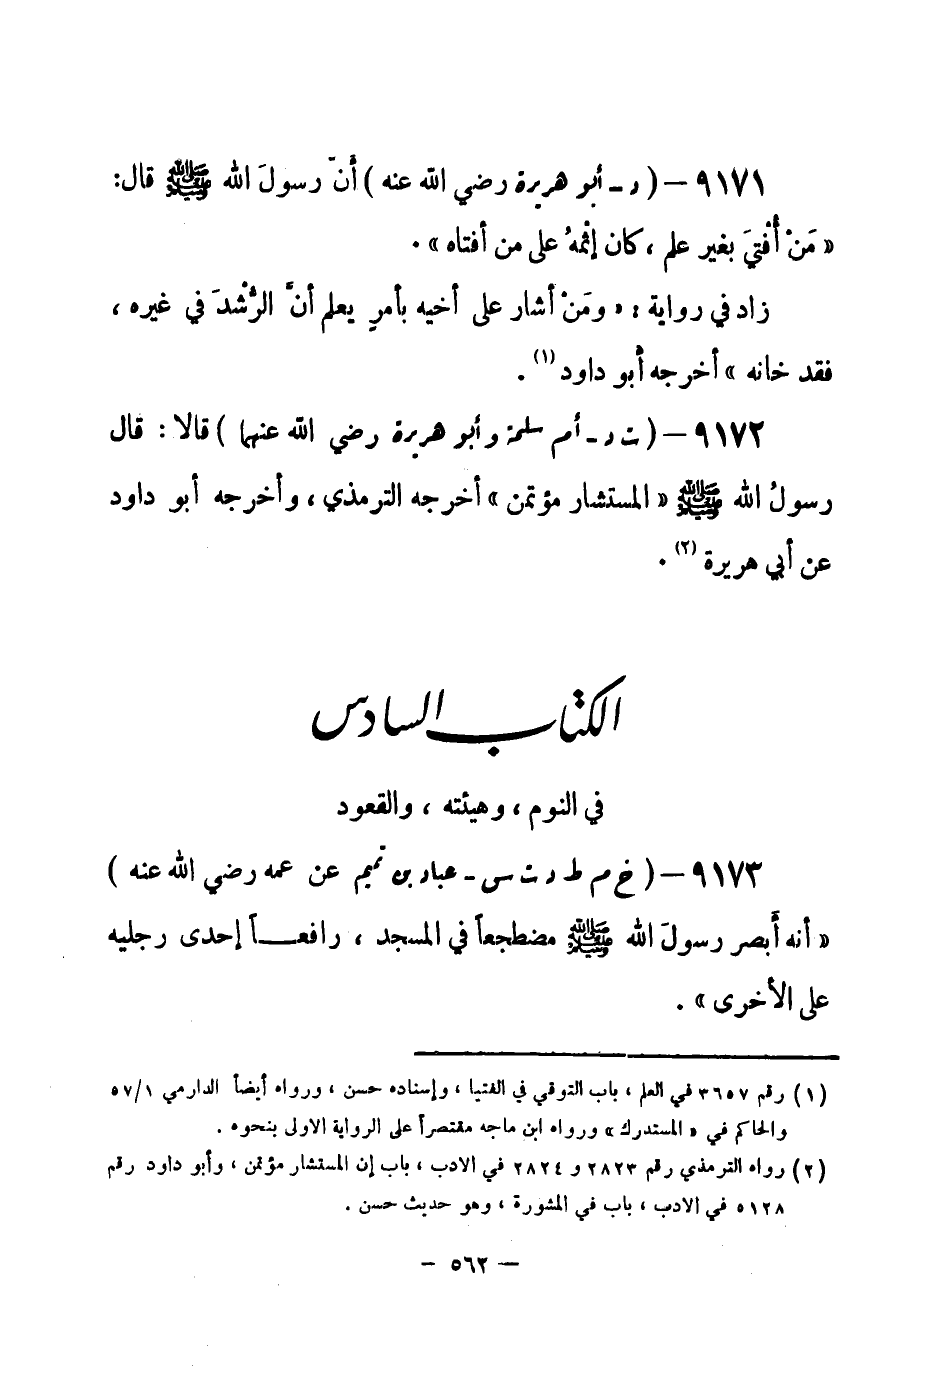 ٩١٧١ – ( د - أبو هريرة رضي الله عنه ) أَنّ رسولَ الله ﷺ قال:
« مَنْ أُفْتِيَ بغير علم ، كان إثْمهُ على من أفتاه » .
زاد في رواية : « ومَنْ أشار على أخيه بأمرٍ يعلم أنَّ الرُّشْدَ في غيره ،
فقد خانه » أخرجه أبو داود (١) .
٩١٧٢ – ( ت د - أم سلمة وأبو هريرة رضي الله عنهما ) قالا : قال
رسولُ الله ﷺ « المستشار مؤتمن » أخرجه الترمذي ، وأخرجه أبو داود
عن أبي هريرة (٢) .
الكتاب السادس
في النوم ، وهيئته ، والقعود
٩١٧٣ – ( خ م ط د ت س - عباد بن تميم عن عمه رضي الله عنه )
« أنه أبصر رسولَ الله ﷺ مضطجعاً في المسجد ، رافعـــاً إحدى رجليه
على الأخرى » .
(١) رقم ٣٦٥٧ في العلم ، باب التوقي في الفتيا ، وإسناده حسن ، ورواه أيضاً الدارمي ٥٧/١
والحاكم في « المستدرك » ورواه ابن ماجه مقتصراً على الرواية الاولى بنحوه .
(٢) رواه الترمذي رقم ٢٨٢٣ و ٢٨٢٤ في الادب ، باب إن المستشار مؤتمن ، وأبو داود رقم
٥١٢٨ في الادب ، باب في المشورة ، وهو حديث حسن .
– ٥٦٢ –